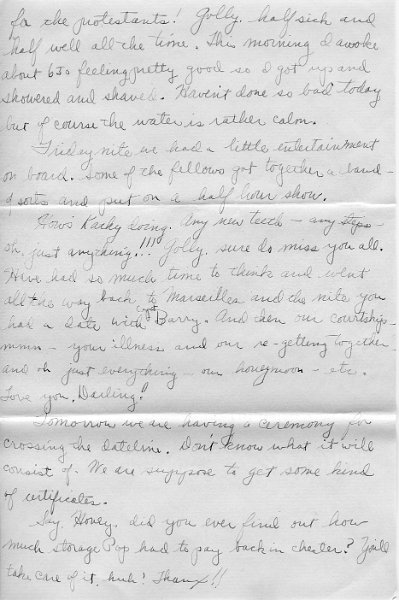 for the protestants! Golly, half sick and
half well all the time. This morning I awoke
about 630 feeling pretty good so I got up and
showered and shaved. Haven't done so bad today
but of course the water is rather calm.
Friday nite we had a little entertainment
on board. Some of the fellows got together a band -
of sorts and put on a half hour show.
How's Kacky doing. Any new teeth - any steps -
oh, just anything!!!! Golly, sure do miss you all.
Have had so much time to think and went
all the way back to Marseilles and the nite you
had a date with Capt Barry. And then our courtship -
mmm - your illness and our re-getting together
and oh just everything - our honeymoon - etc.
Love you, Darling!
Tomorrow we are having a ceremony for
crossing the dateline. Don't know what it will
consist of. We are suppose to get some kind
of certificates.
Say Honey, did you ever find out how
much storage Pop had to pay back in Chester? You'll
take care of it, huh! Thanx!!